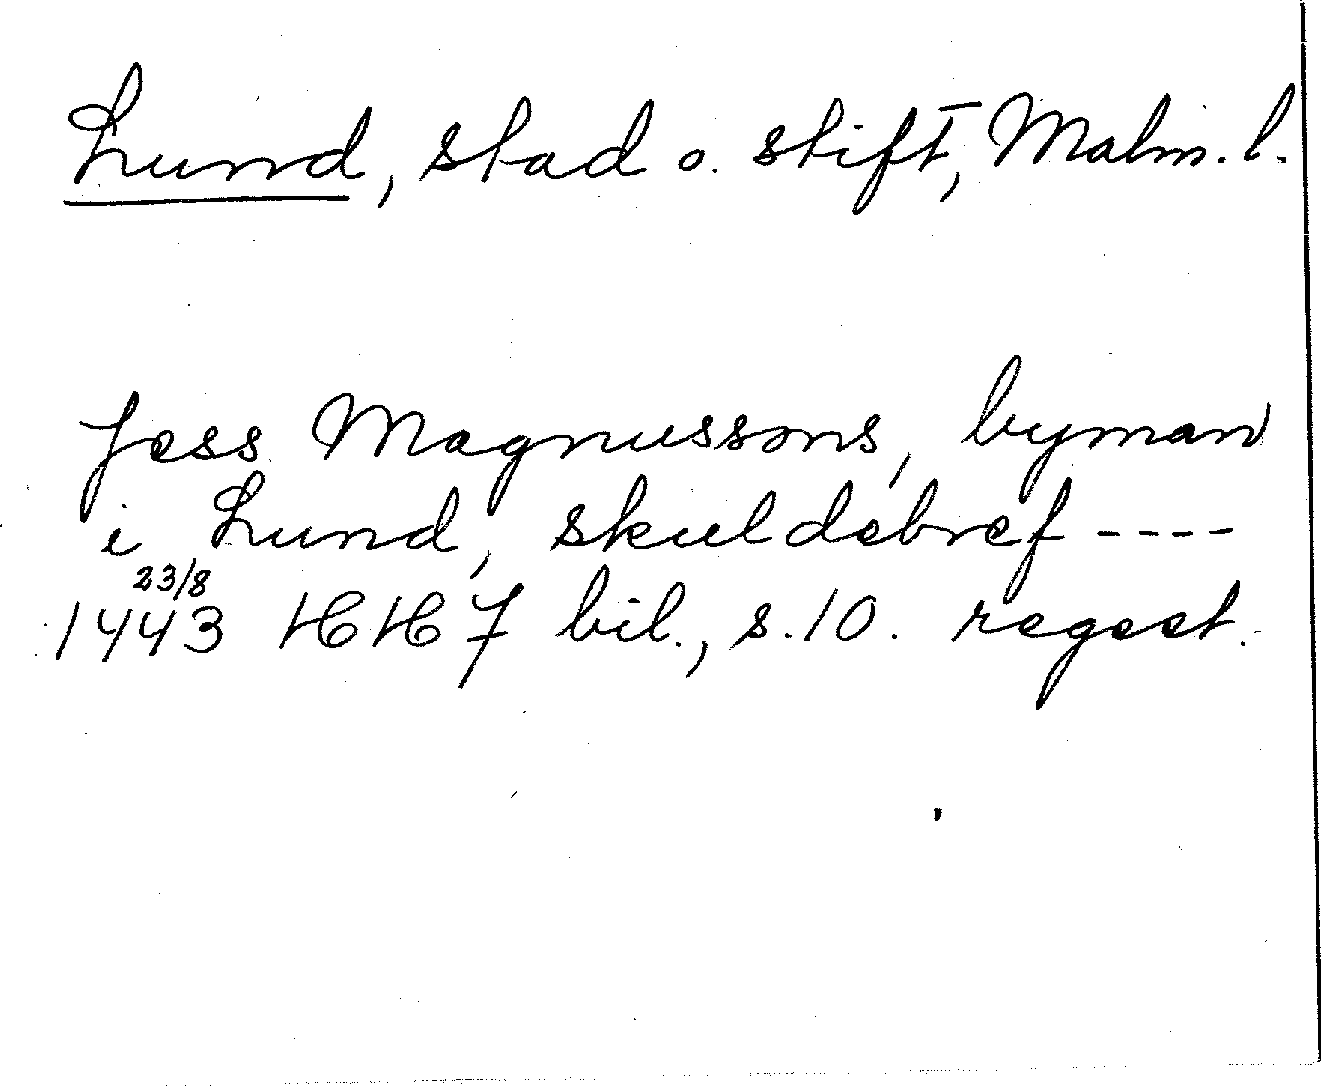 Lund, stad o. stift, Malm. l.
Jess Magnussøns, byman
i Lund, skuldebref ----
23/8
1443 HH 7 bil., s. 10. regest.